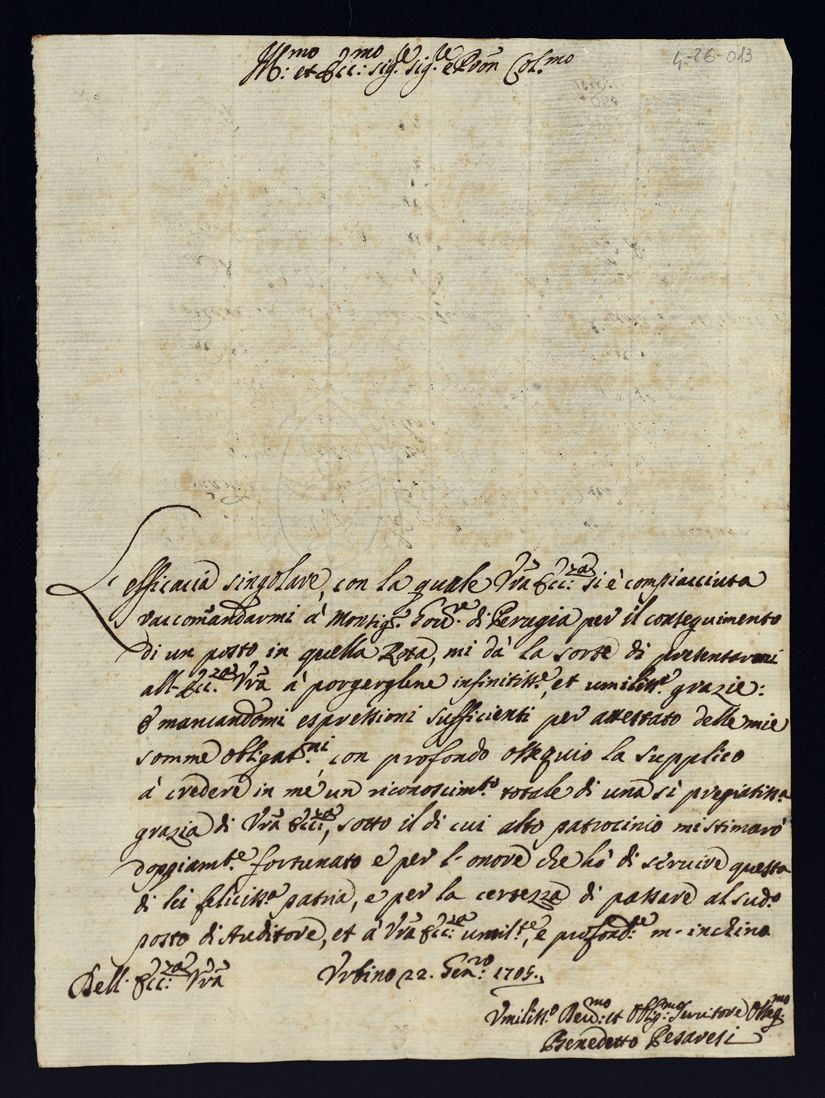 4-26-013
Ill:mo et Ecc:mo Sig.re Sig.re e Pron Col.mo
L'efficacia singolare, con la quale Vra Ecc:za si è compiacciuta
raccomandarmi à Monsig.r Gov.re di Perugia per il conseguimento
di un posto in quella Rota, mi dà la sorte di presentarmi
all'Ecc:za Vra à porgerglene infinitiss.e, et umiliss.e grazie:
E mancandomi espressioni sufficienti per attestato delle mie
somme obligat.ni, con profondo ossequio la supplico
à credere in me un riconoscim.to totale di una sì pregiatiss.a
grazia di Vra Ecc:za, sotto il di cui alto patrocinio mi stimarò
doppiam.te fortunato e per l'onore che hò di servire questa
di lei feliciss.a patria, e per la certezza di passare al sud.o
posto di Auditore, et à Vra Ecc:za umil.te, e profond.te m'inchino
Dell'Ecc:za Vra Urbino 22. Gen.ro 1705.
Umiliss.o Dev:mo et Oblig:mo Servitore Osseq:mo
Benedetto Pesaresi